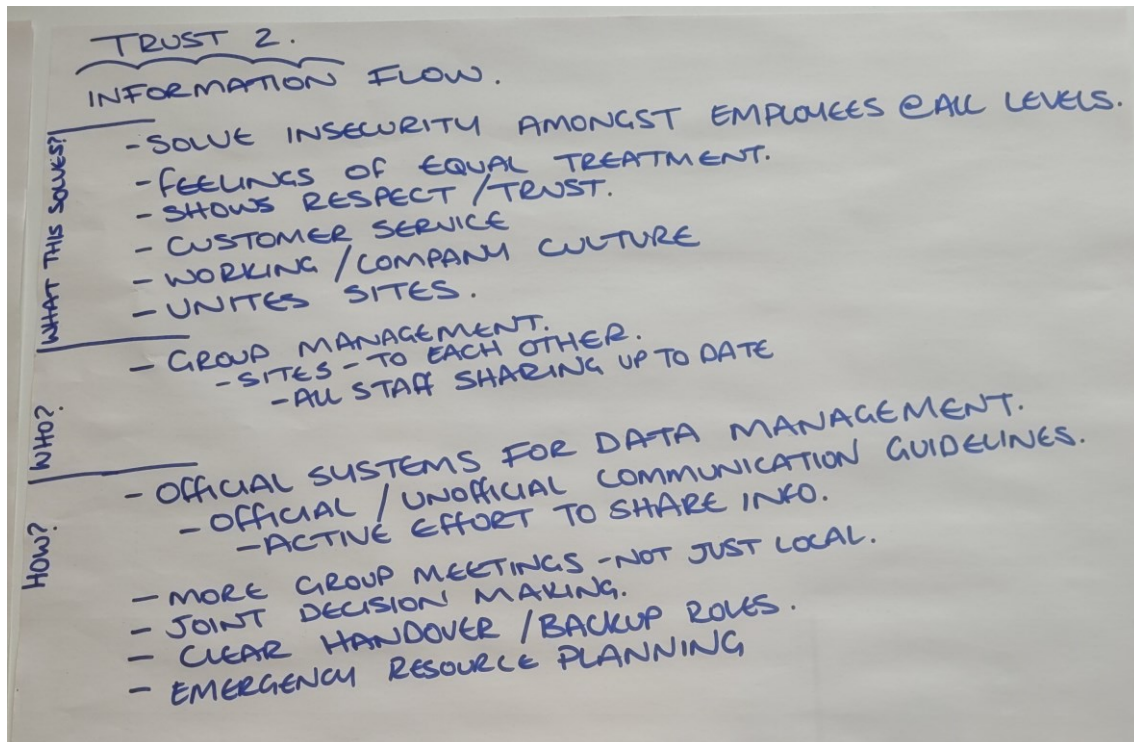 TRUST 2.
INFORMATION FLOW.
WHAT THIS SOLVES?
- SOLVE INSECURITY AMONGST EMPLOYEES @ALL LEVELS.
- FEELINGS OF EQUAL TREATMENT.
- SHOWS RESPECT / TRUST.
- CUSTOMER SERVICE
- WORKING / COMPANY CULTURE
- UNITES SITES.
WHO?
- GROUP MANAGEMENT.
- SITES - TO EACH OTHER.
- ALL STAFF SHARING UP TO DATE
HOW?
- OFFICIAL SYSTEMS FOR DATA MANAGEMENT.
- OFFICIAL / UNOFFICIAL COMMUNICATION GUIDELINES.
- ACTIVE EFFORT TO SHARE INFO.
- MORE GROUP MEETINGS - NOT JUST LOCAL.
- JOINT DECISION MAKING.
- CLEAR HANDOVER / BACKUP ROLES.
- EMERGENCY RESOURCE PLANNING